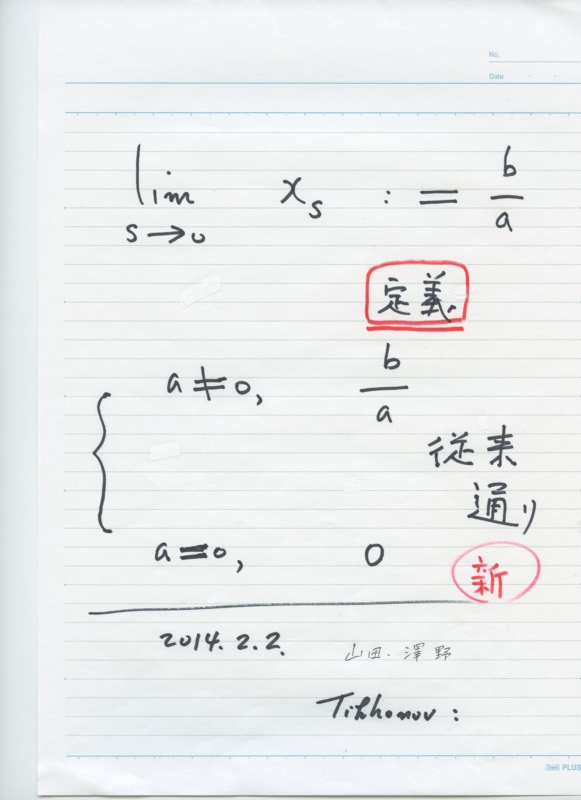 No.
Date
lim x_s := b/a
s→0
定義
a≠0, b/a
従来
通り
a=0, 0
新
2014.2.2.
山田・澤野
Tikhonov:
PLUS